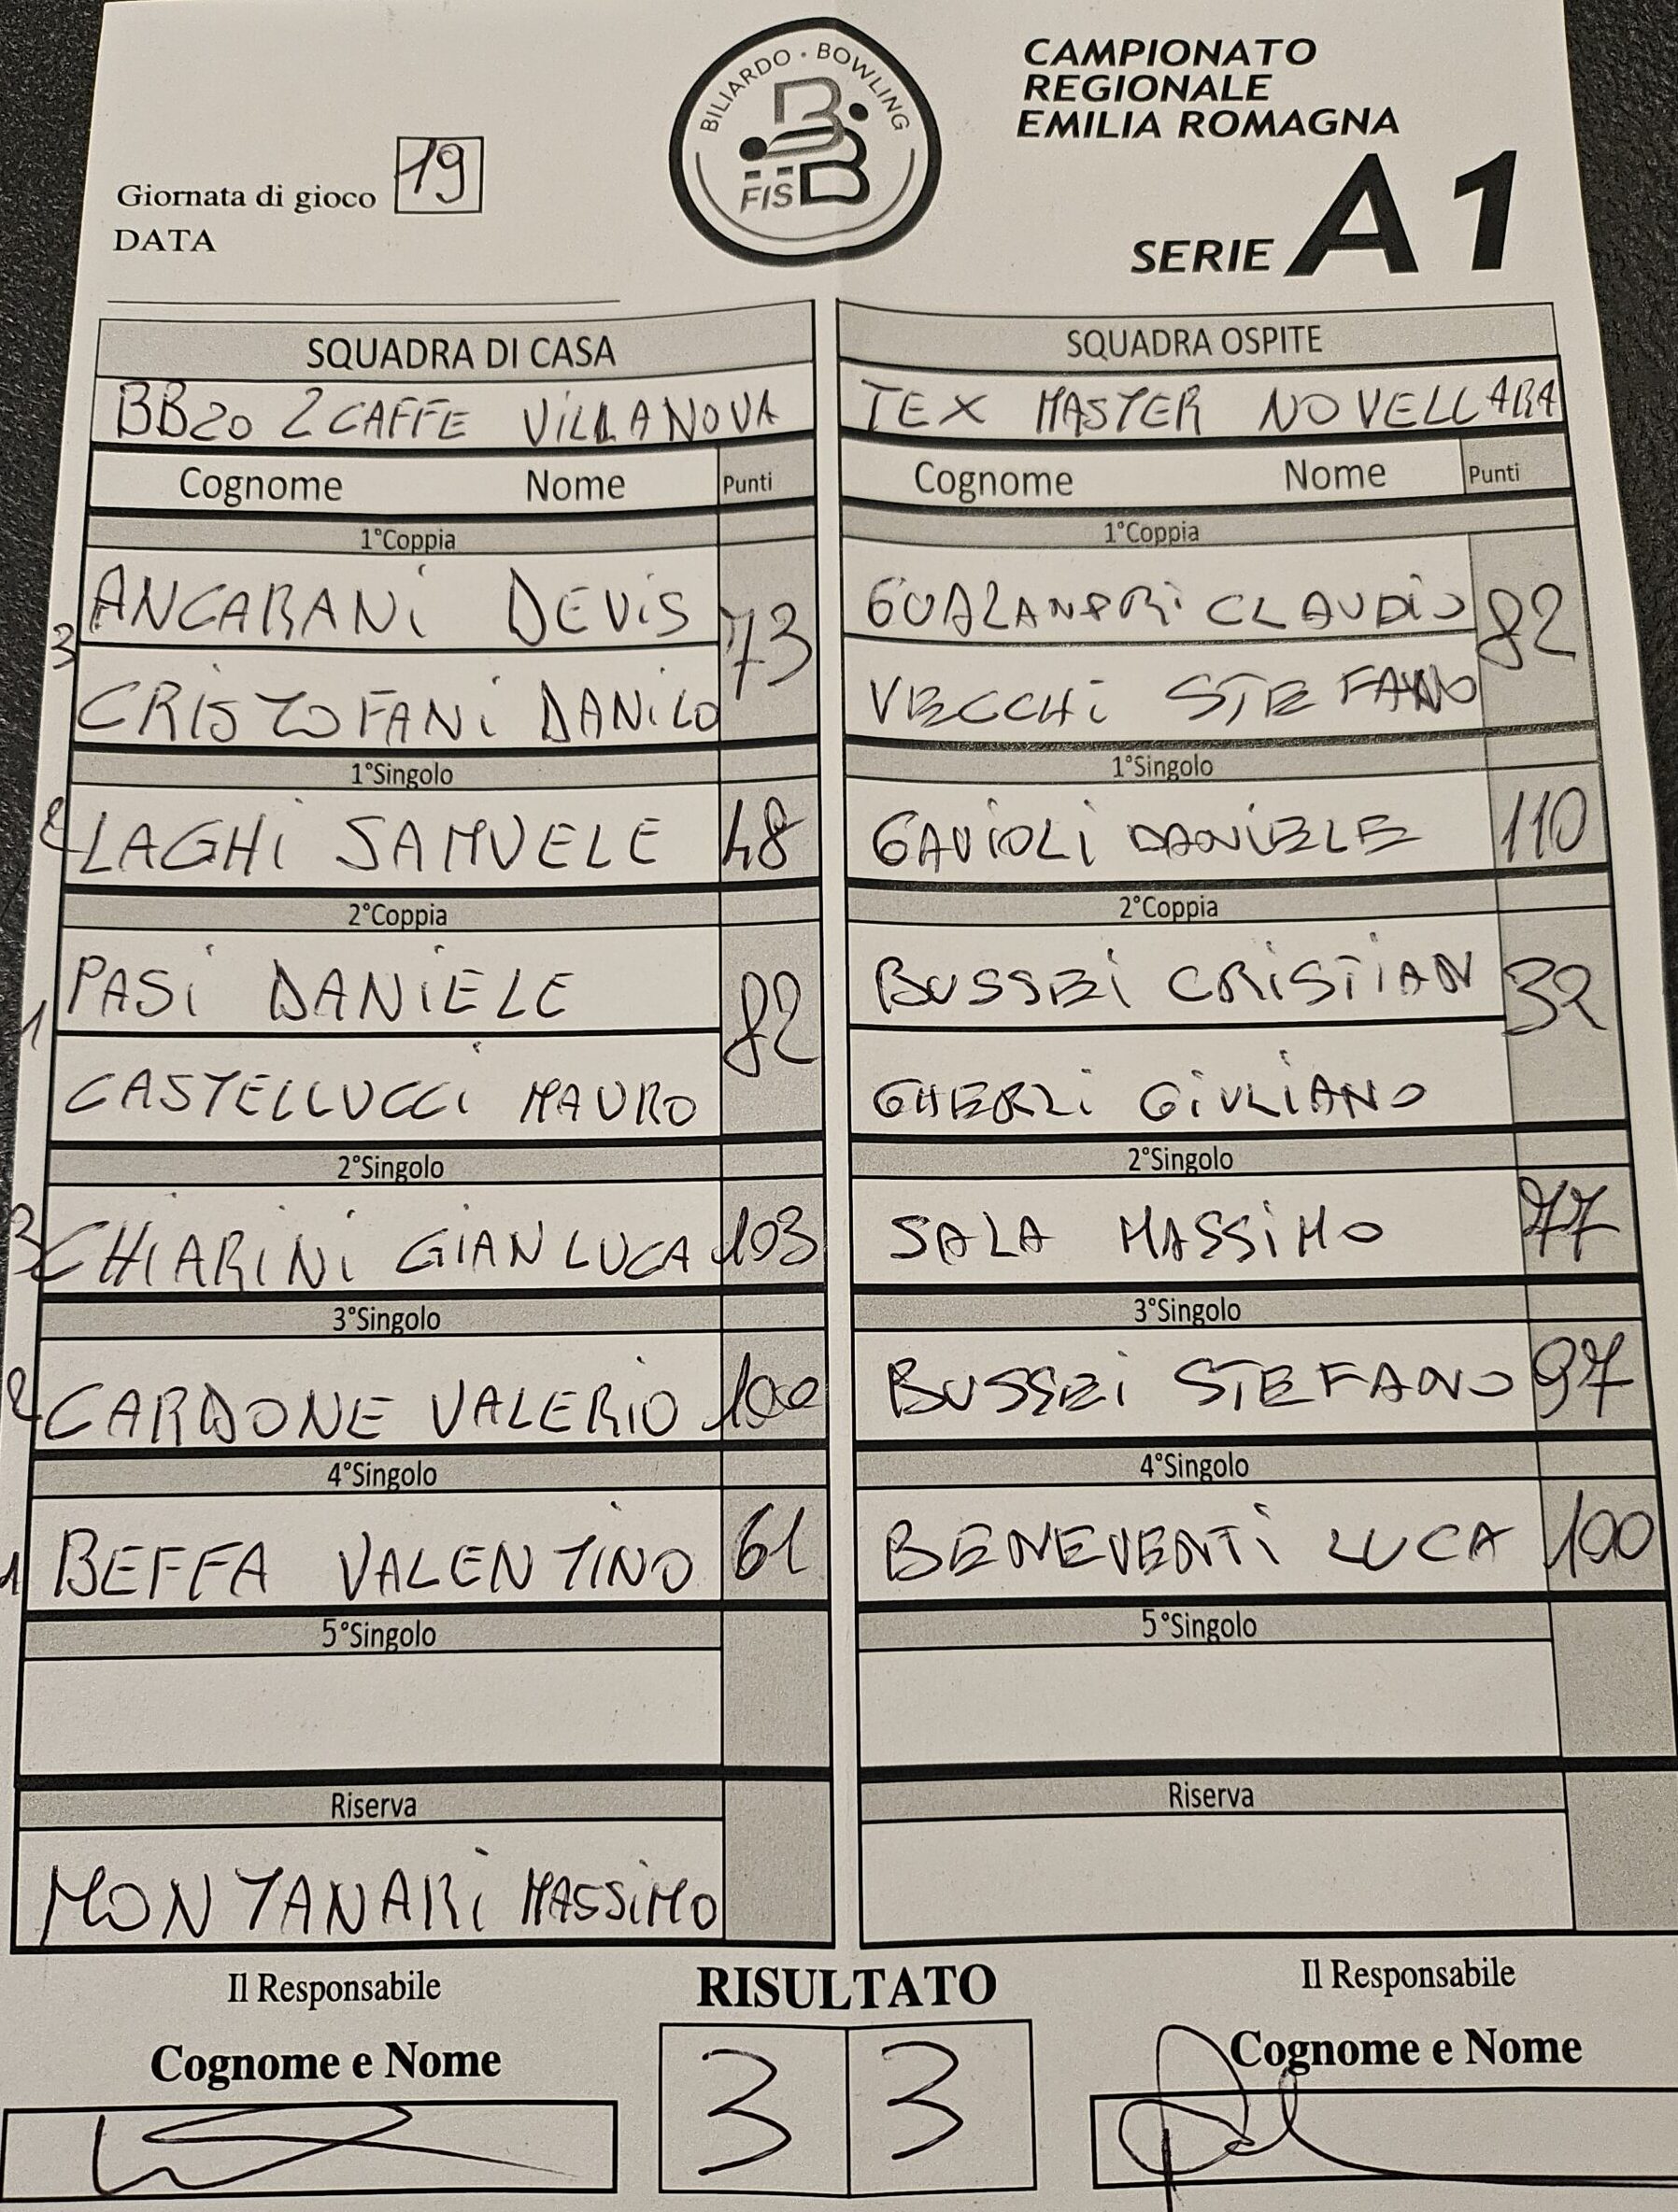 BILIARDO · BOWLING
FISBB
CAMPIONATO
REGIONALE
EMILIA ROMAGNA
SERIE A1
Giornata di gioco 19
DATA
SQUADRA DI CASA
BB20 2CAFFE VILLANOVA
Cognome Nome Punti
1°Coppia
3
ANCARANI DEVIS 73
CRISTOFANI DANILO
1°Singolo
2 LAGHI SAMUELE 48
2°Coppia
1
PASI DANIELE 82
CASTELLUCCI MAURO
2°Singolo
3 CHIARINI GIANLUCA 103
3°Singolo
2 CARDONE VALERIO 100
4°Singolo
1 BEFFA VALENTINO 61
5°Singolo
Riserva
MONTANARI MASSIMO
SQUADRA OSPITE
TEX MASTER NOVELLARA
Cognome Nome Punti
1°Coppia
GUALANDRI CLAUDIO 82
VECCHI STEFANO
1°Singolo
GAVIOLI DANIELE 110
2°Coppia
BUSSEI CRISTIAN 32
GHERLI GIULIANO
2°Singolo
SALA MASSIMO 77
3°Singolo
BUSSEI STEFANO 97
4°Singolo
BENEVENTI LUCA 100
5°Singolo
Riserva
Il Responsabile
Cognome e Nome
RISULTATO
3 3
Il Responsabile
Cognome e Nome